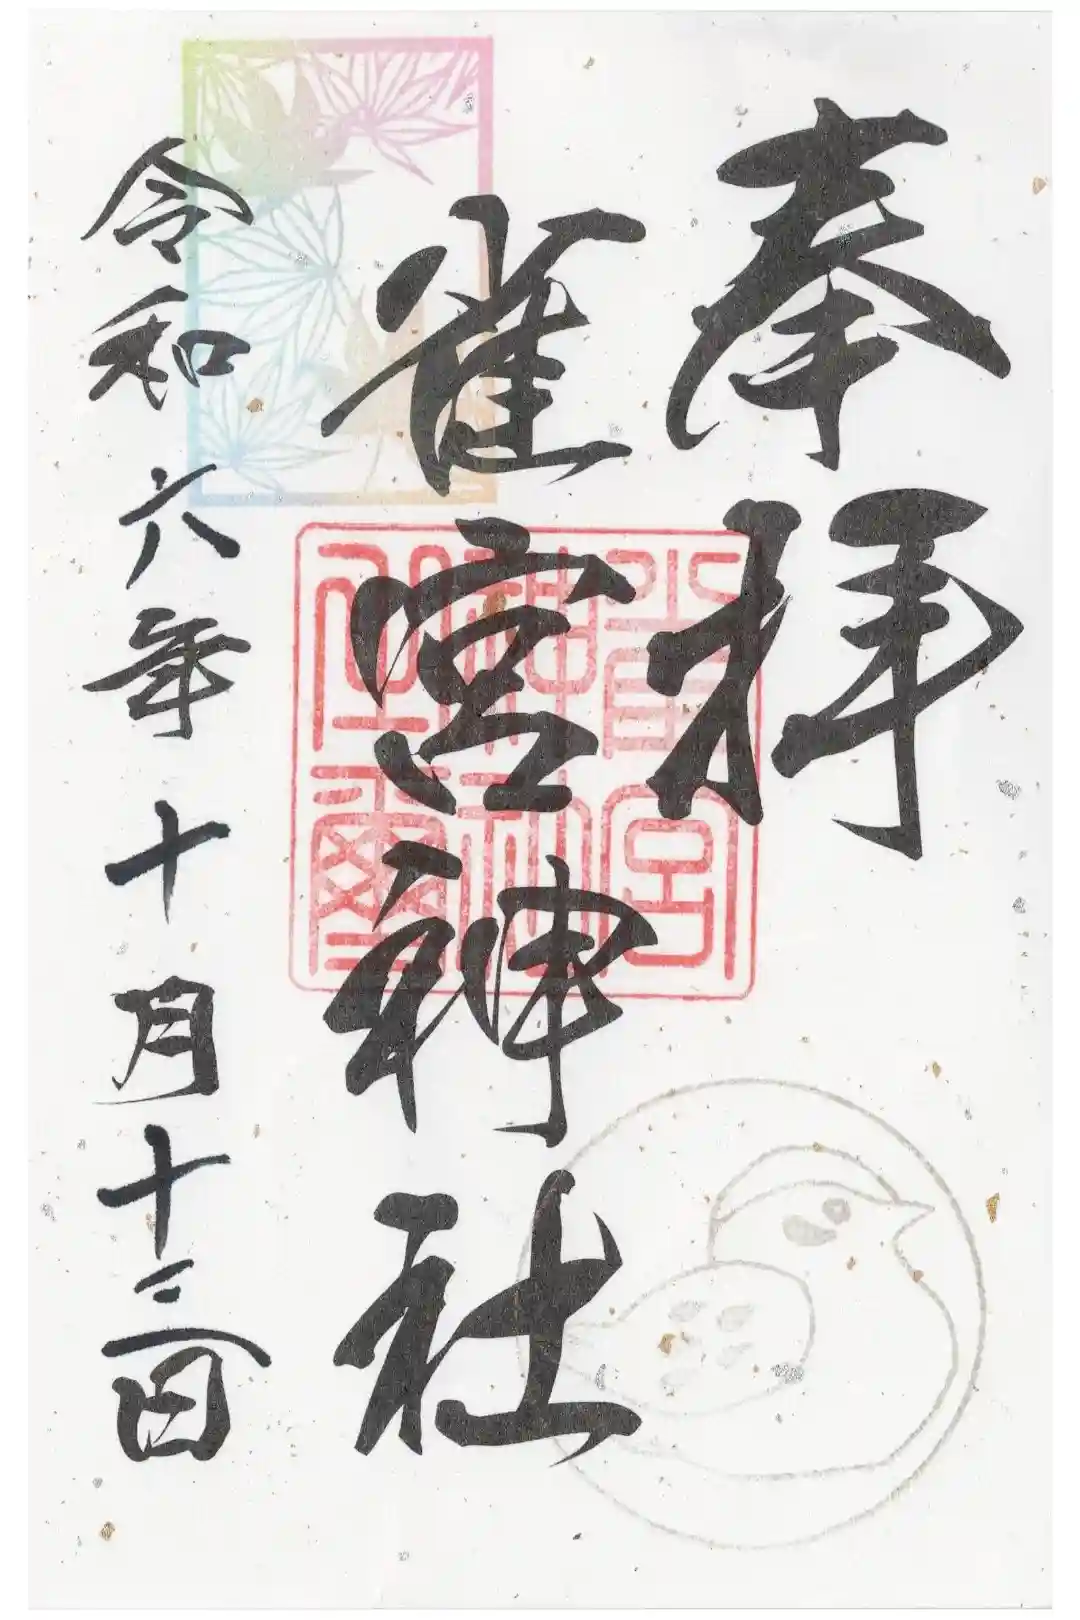 奉拝
雀宮神社
雀宮
神社
之璽
令和六年十月十二日